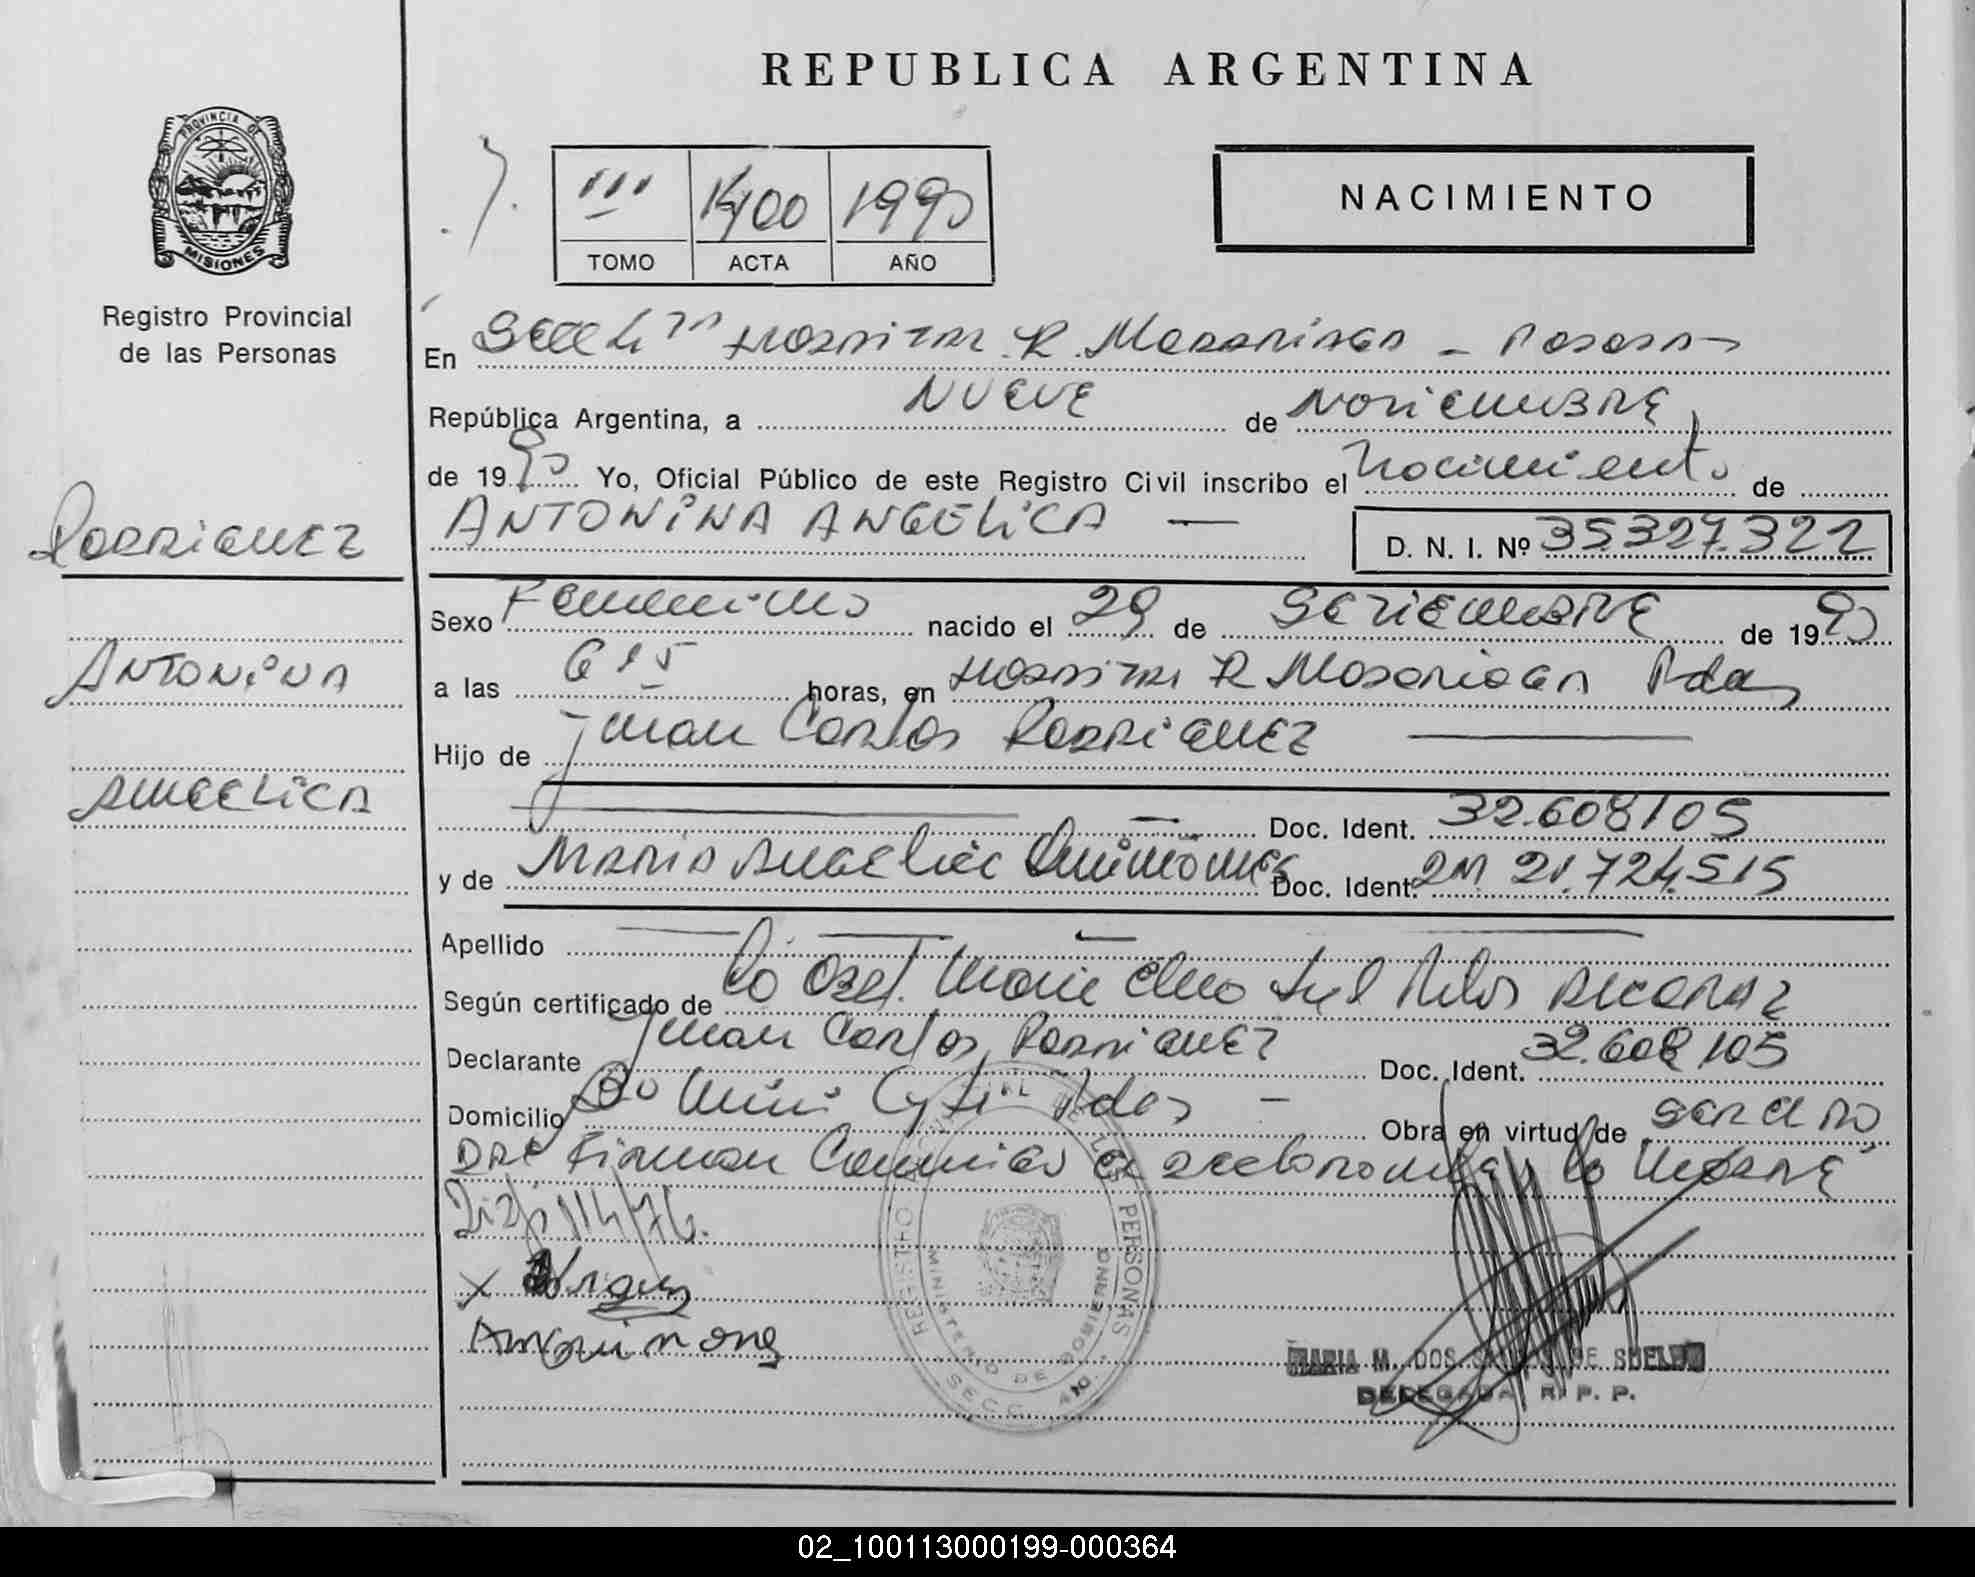 REPUBLICA ARGENTINA
PROVINCIA DE
MISIONES
Registro Provincial
de las Personas
III 1400 1990
TOMO ACTA AÑO
NACIMIENTO
En Secc 4ta Hospital R. Madariaga - Posadas
República Argentina, a NUEVE de NOVIEMBRE
de 1990 Yo, Oficial Público de este Registro Civil inscribo el Nacimiento de
ANTONINA ANGELICA — D. N. I. Nº 35.327.322
RODRIGUEZ
ANTONINA
ANGELICA
Sexo Femenino nacido el 29 de SETIEMBRE de 1990
a las 6 15 horas, en Hospital R Madariaga Pdas
Hijo de Juan Carlos RODRIGUEZ
Doc. Ident. 32.608105
y de MARIA ANGELICA Quiñones Doc. Ident. 21.724.515
Apellido
Según certificado de la Obst. Maria Elena
Declarante Juan Carlos RODRIGUEZ Doc. Ident. 32.608105
Domicilio Pdas - Obra en virtud de SER EL PADRE
Firman la MADRE
REGISTRO PROVINCIAL DE LAS PERSONAS
MINISTERIO DE GOBIERNO
SECC. 4ta.
MARIA M. DOS SANTOS DE SUELDO
DELEGADA R. P. P.
02_100113000199-000364